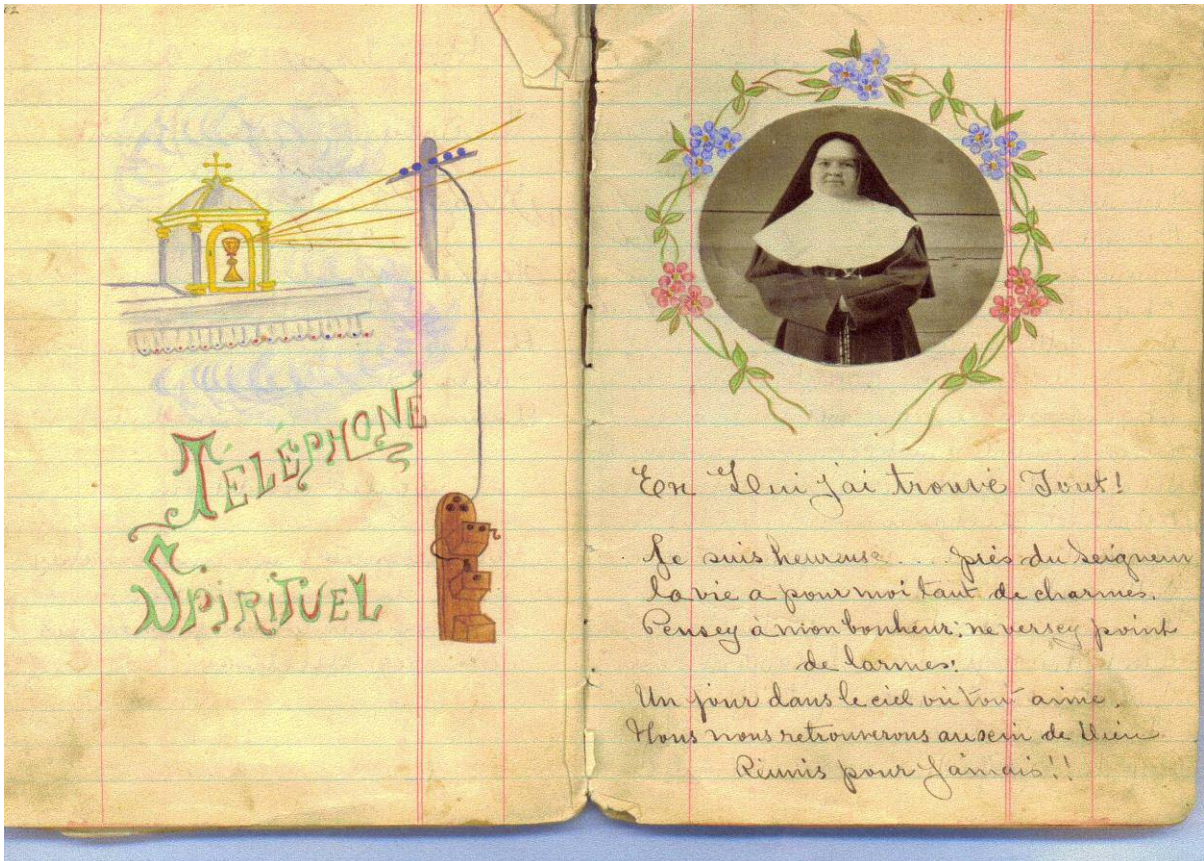 TÉLÉPHONE
SPIRITUEL
En Lui j'ai trouvé Tout!
Je suis heureuse .... près du Seigneur
la vie a pour moi tant de charmes.
Pensez à mon bonheur; ne versez point
de larmes:
Un jour dans le ciel où tout aime.
Nous nous retrouverons au sein de Dieu
Réunis pour Jamais!!